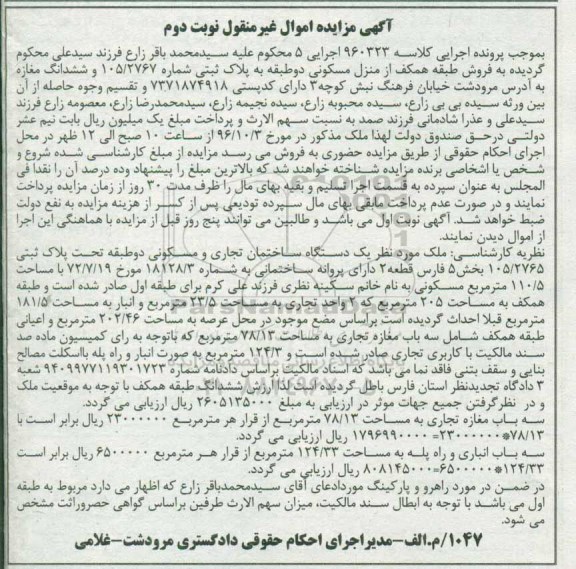 آگهی مزایده اموال غیرمنقول نوبت دوم
بموجب پرونده اجرایی کلاسه ۹۶۰۳۲۳ اجرایی ۵ محکوم علیه سیدمحمد باقر زارع فرزند سیدعلی محکوم
گردیده به فروش طبقه همکف از منزل مسکونی دوطبقه به پلاک ثبتی شماره ۱۰۵/۲۷۶۷ و ششدانگ مغازه
به آدرس مرودشت خیابان فرهنگ نبش کوچه۳ دارای کدپستی ۷۳۷۱۸۷۴۹۱۸ و تقسیم وجوه حاصله از آن
بین ورثه سیده بی بی زارع، سیده محبوبه زارع، سیده نجیمه زارع، سیدمحمدرضا زارع، معصومه زارع فرزند
سیدعلی و عذرا شادمانی فرزند صمد به نسبت سهم الارث و پرداخت مبلغ یک میلیون ریال بابت نیم عشر
دولتی درحق صندوق دولت لهذا ملک مذکور در مورخ ۹۶/۱۰/۳ از ساعت ۱۰ صبح الی ۱۲ ظهر در محل
اجرای احکام حقوقی از طریق مزایده حضوری به فروش می رسد مزایده از مبلغ کارشناسی شده شروع و
شخص یا اشخاصی برنده مزایده شناخته خواهند شد که بالاترین مبلغ را پیشنهاد وده درصد آن را نقدا فی
المجلس به عنوان سپرده به قسمت اجرا تسلیم و بقیه بهای مال را ظرف مدت ۳۰ روز از زمان مزایده پرداخت
نمایند و در صورت عدم پرداخت مابقی بهای مال سپرده تودیعی پس از کسر از هزینه مزایده به نفع دولت
ضبط خواهد شد. آگهی نوبت اول می باشد و طالبین می توانند پنج روز قبل از مزایده با هماهنگی این اجرا
از اموال دیدن نمایند.
نظریه کارشناسی: ملک مورد نظر یک دستگاه ساختمان تجاری و مسکونی دوطبقه تحت پلاک ثبتی
۱۰۵/۲۷۶۵ بخش۵ فارس قطعه۲ دارای پروانه ساختمانی به شماره ۱۸۱۲۸/۳ مورخ ۷۲/۷/۱۹ با مساحت
۱۱۰/۵ مترمربع مسکونی به نام خانم سکینه نظری فرزند علی کرم برای طبقه اول صادر شده است و طبقه
همکف به مساحت ۲۰۵ مترمربع که ۲ واحد تجاری به مساحت ۲۳/۵ مترمربع و انبار به مساحت ۱۸۱/۵
مترمربع قبلا احداث گردیده است براساس مضع موجود در محل عرصه به مساحت ۲۰۲/۴۶ مترمربع و اعیانی
طبقه همکف شامل سه باب مغازه تجاری به مساحت ۷۸/۱۳ مترمربع که باتوجه به رای کمیسیون ماده صد
سند مالکیت با کاربری تجاری صادر شده است و ۱۲۴/۳ مترمربع به صورت انبار و راه پله بااسکلت مصالح
بنایی و سقف بتنی فاقد نما می باشد که اسناد مالکیت براساس دادنامه شماره ۹۴۰۹۹۷۷۱۱۹۳۰۱۷۲۳ شعبه
۳ دادگاه تجدیدنظر استان فارس باطل گردیده است لذا ارزش ششدانگ طبقه همکف با توجه به موقعیت ملک
و در نظرگرفتن جمیع جهات موثر در ارزیابی به مبلغ ۲۶۰۵۱۳۵۰۰۰ ریال ارزیابی می گردد.
سه باب مغازه تجاری به مساحت ۷۸/۱۳ مترمربع از قرار هر مترمربع ۲۳۰۰۰۰۰۰ ریال برابر است با
۷۸/۱۳*۲۳۰۰۰۰۰۰=۱۷۹۶۹۹۰۰۰۰ ریال ارزیابی می گردد.
سه باب انباری و راه پله به مساحت ۱۲۴/۳۳ مترمربع از قرار هر مترمربع ۶۵۰۰۰۰۰ ریال برابر است
۱۲۴/۳۳*۶۵۰۰۰۰۰=۸۰۸۱۴۵۰۰۰ ریال ارزیابی می گردد.
در ضمن در مورد راهرو و پارکینگ موردادعای آقای سیدمحمدباقر زارع که اظهار می دارد مربوط به طبقه
اول می باشد با توجه به ابطال سند مالکیت، میزان سهم الارث طرفین براساس گواهی حصروراثت مشخص
می شود.
۱۰۴۷/م.الف-مدیراجرای احکام حقوقی دادگستری مرودشت-غلامی